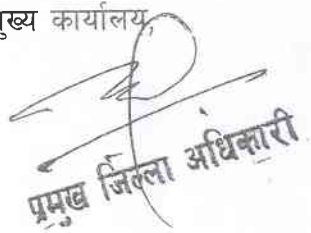 मुख्य कार्यालय,
प्रमुख जिल्ला अधिकारी